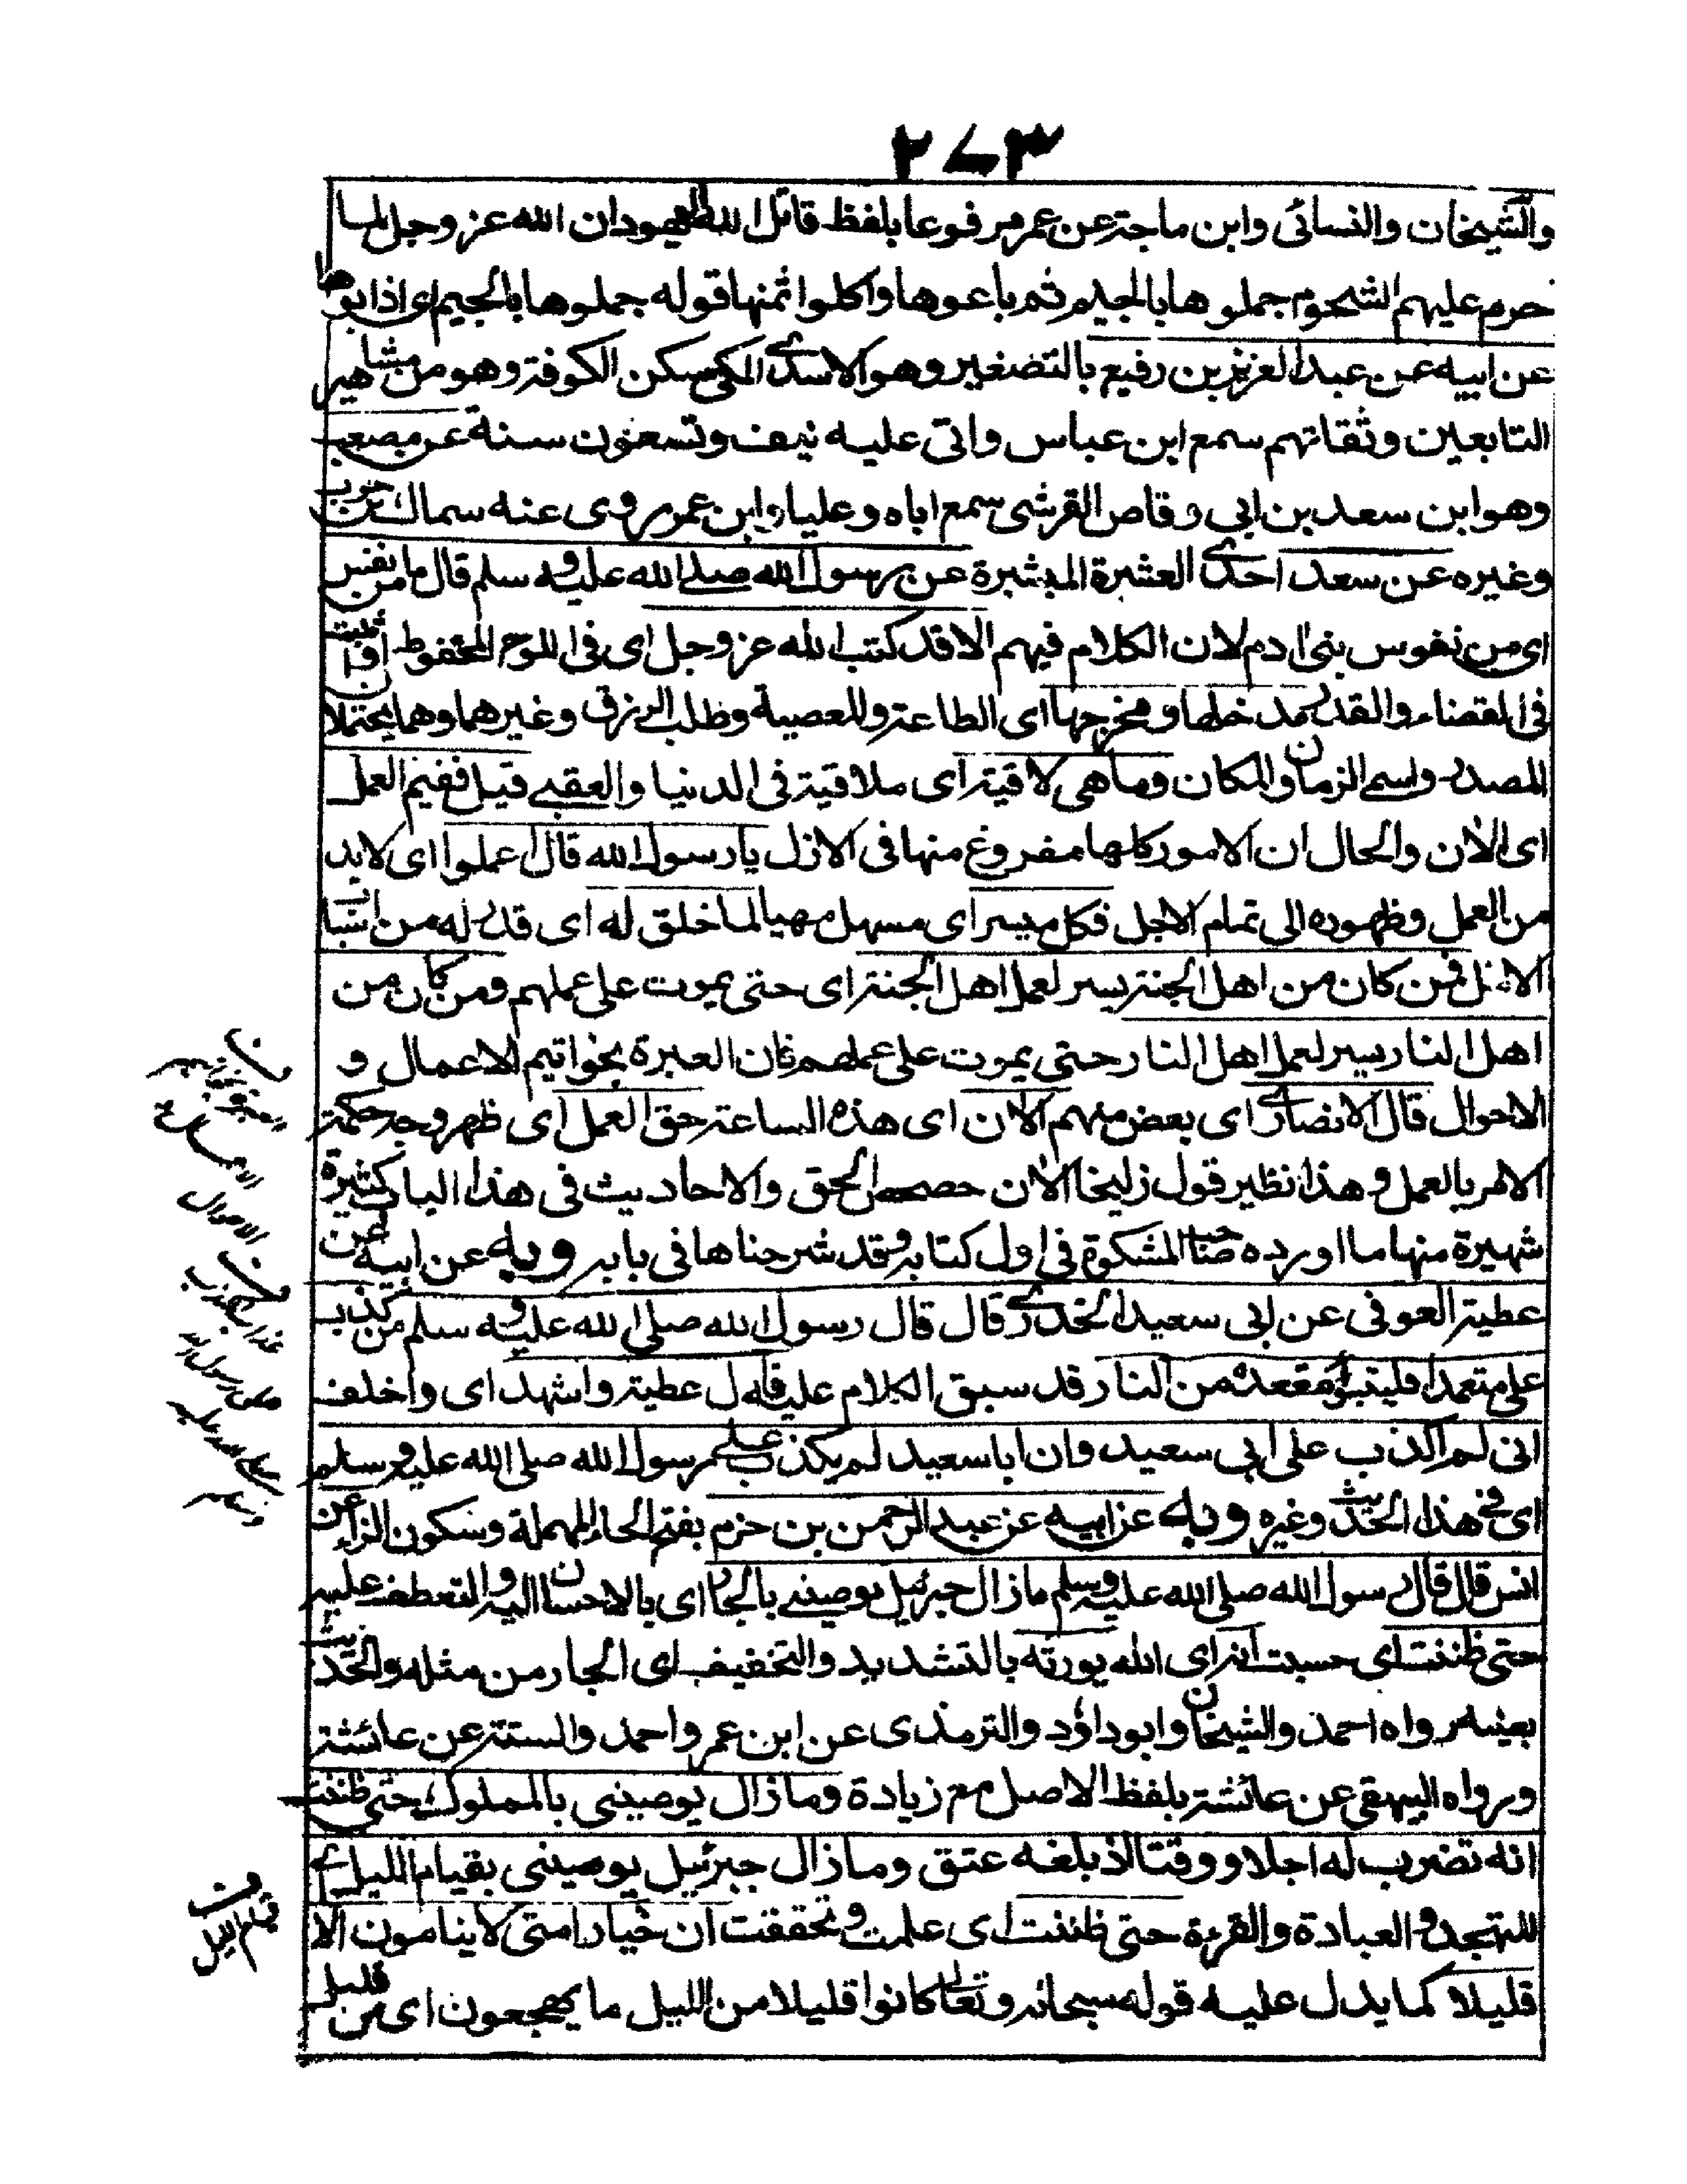 ٢٧٣
والشيخان والنسائى وابن ماجة عن عمر مرفوعا بلفظ قاتل الله اليهود ان الله عز وجل لما
حرم عليهم الشحوم جملوها بالجيم ثم باعوها واكلوا ثمنها قوله جملوها بالجيم اى اذابوها
عن ابيه عن عبد العزيز بن رفيع بالتصغير وهو الاسدى المكى سكن الكوفة وهو من مشاهير
التابعين وثقاتهم سمع ابن عباس واتى عليه نيف وتسعون سنة عن مصعب
وهو ابن سعد بن ابى وقاص القرشى سمع اباه وعليا وابن عمر روى عنه سماك بن حرب
وغيره عن سعد احدى العشرة المبشرة عن رسول الله صلى الله عليه وسلم قال ما من نفس
اى من نفوس بنى ادم لان الكلام فيهم الا قد كتب الله عز وجل اى فى اللوح المحفوظ
فى القضاء والقدر مدخلها ومخرجها اى الطاعة والمعصية وطلب الرزق وغيرهما وهما يحتملا
المصدر واسم الزمان والمكان وما هى لاقية اى ملاقية فى الدنيا والعقبى قيل ففيم العمل
اى الآن والحال ان الامور كلها مفروغ منها فى الازل يا رسول الله قال اعملوا اى لا بد
من العمل وظهوره الى تمام الاجل فكل ميسر اى مسهل مهيا لما خلق له اى قدر له من
الازل فمن كان من اهل الجنة يسر لعمل اهل الجنة اى حتى يموت على عملهم ومن كان من
اهل النار يسر لعمل اهل النار حتى يموت على عملهم فان العبرة بخواتيم الاعمال و
الاحوال قال الانصارى اى بعض منهم الآن اى هذه الساعة حق العمل اى ظهر وجه حكمة
الامر بالعمل وهذا نظير قول زليخا الآن حصحص الحق والاحاديث فى هذا الباب كثيرة
شهيرة منها ما اورده صاحب المشكوة فى اول كتابه وقد شرحناها فى بابه وبه عن ابيه عن
عطية العوفى عن ابى سعيد الخدرى قال قال رسول الله صلى الله عليه وسلم من كذب
على متعمدا فليتبوأ مقعده من النار قد سبق الكلام عليه قال عطية واشهد اى واحلف
انى لم اكذب على ابى سعيد وان ابا سعيد لم يكذب على رسول الله صلى الله عليه وسلم
اى فى هذا الحديث وغيره وبه عن ابيه عن عبد الرحمن بن حزم بفتح الحاء المهملة وسكون الزاء عن
انس قال قال رسول الله صلى الله عليه وسلم ما زال جبرئيل يوصينى بالجار اى بالاحسان اليه والتعطف عليه
حتى ظننت اى حسبت انه اى الله يورثه بالتشديد والتخفيف اى الجار من مثله والحديث
بعينه رواه احمد والشيخان وابو داود والترمذى عن ابن عمر واحمد والستة عن عائشة
ورواه البيهقى عن عائشة بلفظ الاصل مع زيادة وما زال يوصينى بالمملوك حتى ظننت
انه يضرب له اجلا ووقتا اذا بلغه عتق وما زال جبرئيل يوصينى بقيام الليل اى
للتهجد والعبادة والقرءة حتى ظننت اى علمت وتحققت ان خيار امتى لا ينامون الا
قليلا كما يدل عليه قوله سبحانه وتعالى كانوا قليلا من الليل ما يهجعون اى من قليل